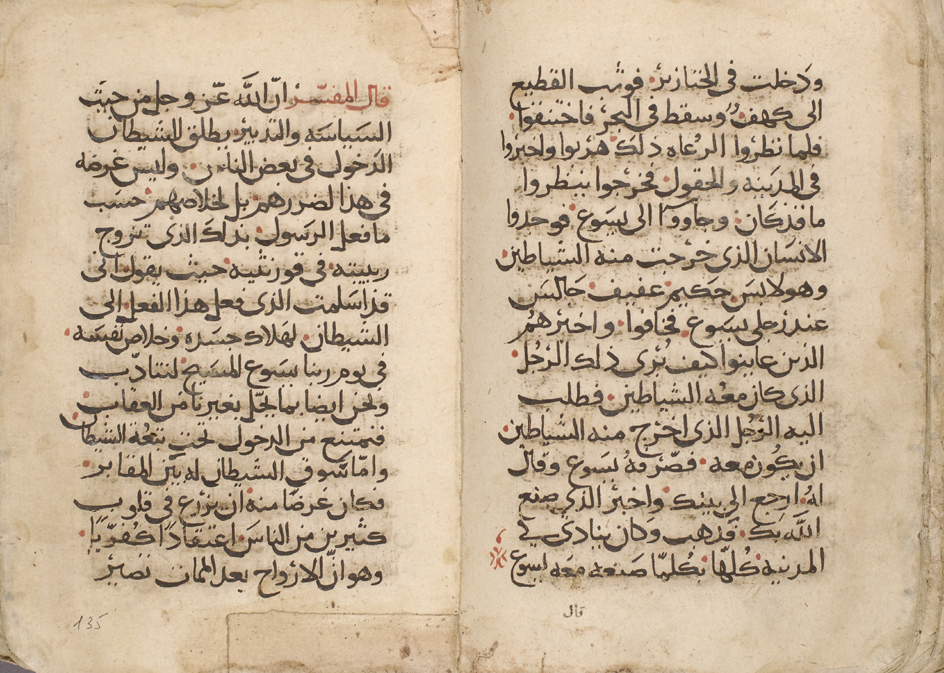 ودخلت في الخنازير فوثب القطيع
الى كهف وسقط في البحر فاختنقوا
فلما نظروا الرعاه ذلك هربوا واخبروا
في المدينه والحقول فخرجوا لينظروا
ما قد كان وجاووا الى يسوع فوجدوا
الانسان الذي خرجت منه الشياطين
وهو لابس حكيم عفيف جالس
عند رجلي يسوع فخافوا واخبرهم
الذين عاينوا كيف بري ذلك الرجل
الذي كان معه الشياطين فطلب
اليه الرجل الذي اخرج منه الشياطين
ان يكون معه فصرفه يسوع وقال
له ارجع الى بيتك واخبر الذي صنع
الله بك فذهب وكان ينادي في
المدينه كلها بكلما صنعه معه يسوع
قال
قال المفسر ان الله عز وجل من حيث
السياسه والتدبير يطلق للشيطان
الدخول في بعض الناس وليس غرضه
في هذا لضررهم بل لخلاصهم حسب
ما فعل الرسول بذلك الذي تزوج
ربيبته في قورنثيه حيث يقول اني
قد اسلمت الذي فعل هذا الفعل الى
الشيطان لهلاك جسده وخلاص نفسه
في يوم ربنا يسوع المسيح لنتادب
ونحن ايضا بما يحل بغيرنا من العقاب
فنمتنع من الدخول تحت تبعه الشيطان
واما سوق الشيطان له بين المقابر
فكان غرضا منه ان يزرع في قلوب
كثيرين من الناس اعتقادا كفريا
وهو ان الارواح بعد الممات تصير
135